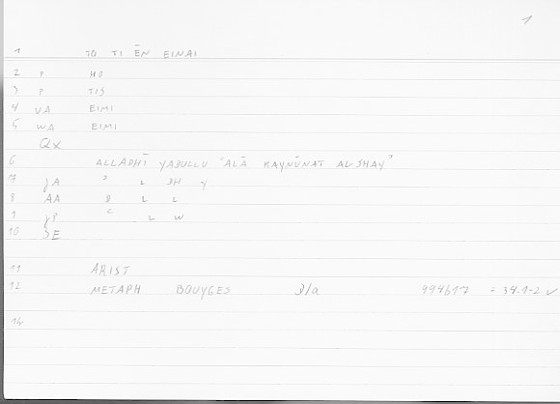 1
1 TO TI ĒN EINAI
2 P HO
3 P TIS
4 VA EIMI
5 WA EIMI
Qx
6 ALLADHĪ YADULLU ʿALĀ KAYNŪNAT AL-SHAYʾ
7 JA ʾ L DH Y
8 AA D L L
9 JP ʿ L W
10 SE
11 ARIST
12 METAPH BOUYGES 994b17 = 34.1-2 ✓
14